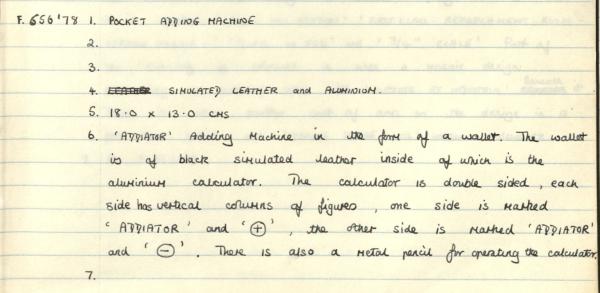 F.656'78 1. POCKET ADDING MACHINE
2.
3.
4. LEATHER SIMULATED LEATHER and ALUMINIUM.
5. 18.0 x 13.0 CMS
6. 'ADDIATOR' Adding Machine in the form of a wallet. The wallet
is of black simulated leather inside of which is the
aluminium calculator. The calculator is double sided, each
side has vertical columns of figures, one side is marked
'ADDIATOR' and '⊕', the other side is marked 'ADDIATOR'
and '⊖'. There is also a metal pencil for operating the calculator.
7.